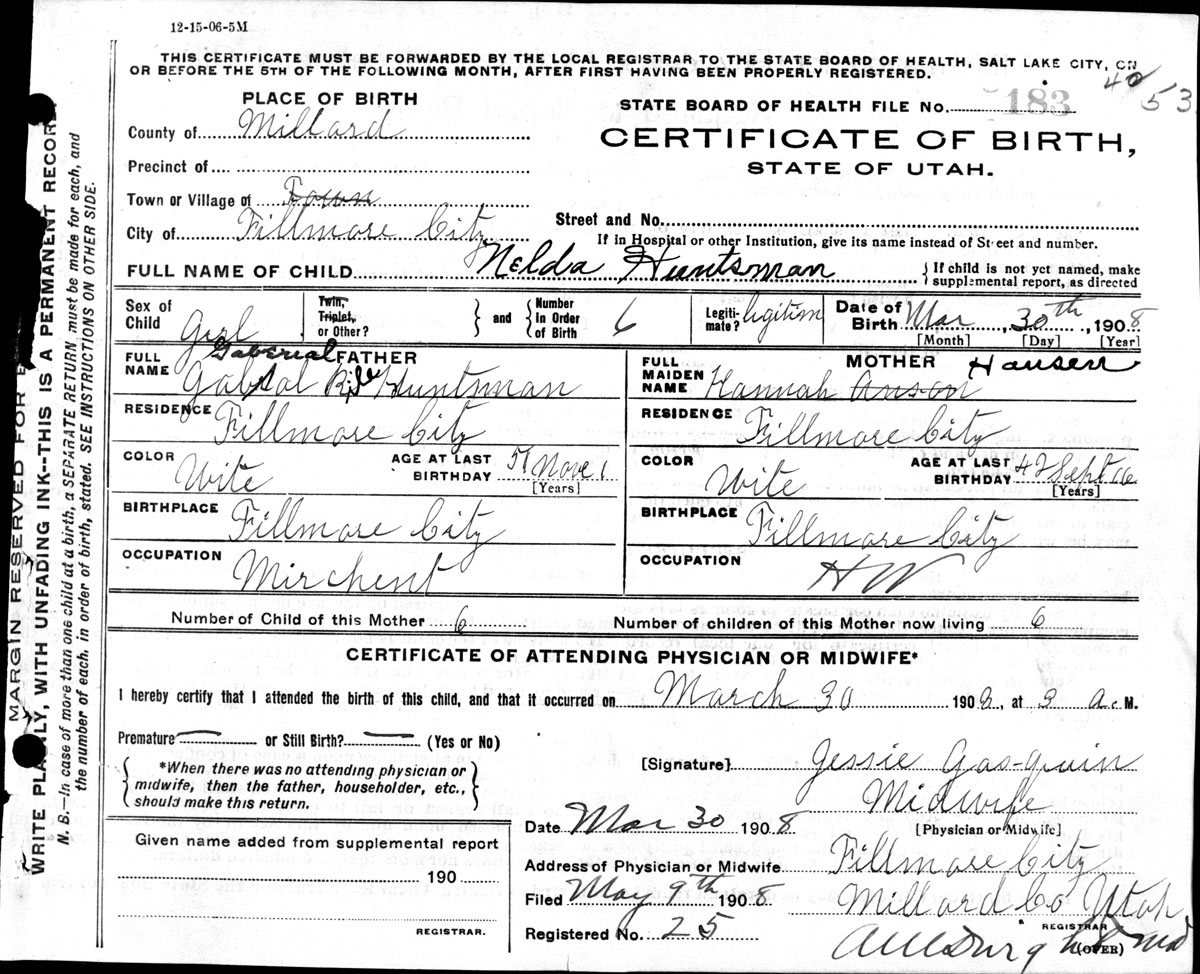 12-15-06-5M
THIS CERTIFICATE MUST BE FORWARDED BY THE LOCAL REGISTRAR TO THE STATE BOARD OF HEALTH, SALT LAKE CITY, ON
OR BEFORE THE 5TH OF THE FOLLOWING MONTH, AFTER FIRST HAVING BEEN PROPERLY REGISTERED.
42
53
PLACE OF BIRTH
STATE BOARD OF HEALTH FILE No. 183
County of Millard
CERTIFICATE OF BIRTH,
STATE OF UTAH.
Precinct of
Town or Village of Town
City of Fillmore City
Street and No.
If in Hospital or other Institution, give its name instead of Street and number.
FULL NAME OF CHILD Nelda Huntsman
{ If child is not yet named, make
supplemental report, as directed
Sex of Child Girl
Twin, Triplet, or Other? } and { Number In Order of Birth 6
Legiti-mate? legitim
Date of Birth Mar 30th, 1908
[Month] [Day] [Year]
FULL NAME FATHER
Gaberial
Huntsman
RESIDENCE Fillmore City
COLOR Wite
AGE AT LAST BIRTHDAY 51 Nove 1
[Years]
BIRTHPLACE Fillmore City
OCCUPATION Mirchent
FULL MAIDEN NAME MOTHER Hansen
Hannah Anson
RESIDENCE Fillmore City
COLOR Wite
AGE AT LAST BIRTHDAY 42 Sept 16
[Years]
BIRTHPLACE Fillmore City
OCCUPATION HW
Number of Child of this Mother 6 Number of children of this Mother now living 6
CERTIFICATE OF ATTENDING PHYSICIAN OR MIDWIFE*
I hereby certify that I attended the birth of this child, and that it occurred on March 30 1908, at 3 a. M.
Premature — or Still Birth? — (Yes or No)
{ *When there was no attending physician or
midwife, then the father, householder, etc.,
should make this return. }
[Signature] Jessie Gasquin
Midwife
[Physician or Midwife]
Date Mar 30 1908
Given name added from supplemental report
190
REGISTRAR.
Address of Physician or Midwife Fillmore City
Filed May 9th 1908 Millard Co Utah
Registered No. 25
REGISTRAR
(OVER)
MARGIN RESERVED FOR B
WRITE PLAINLY, WITH UNFADING INK--THIS IS A PERMANENT RECORD.
N. B.—In case of more than one child at a birth, a SEPARATE RETURN must be made for each, and
the number of each, in order of birth, stated. SEE INSTRUCTIONS ON OTHER SIDE.